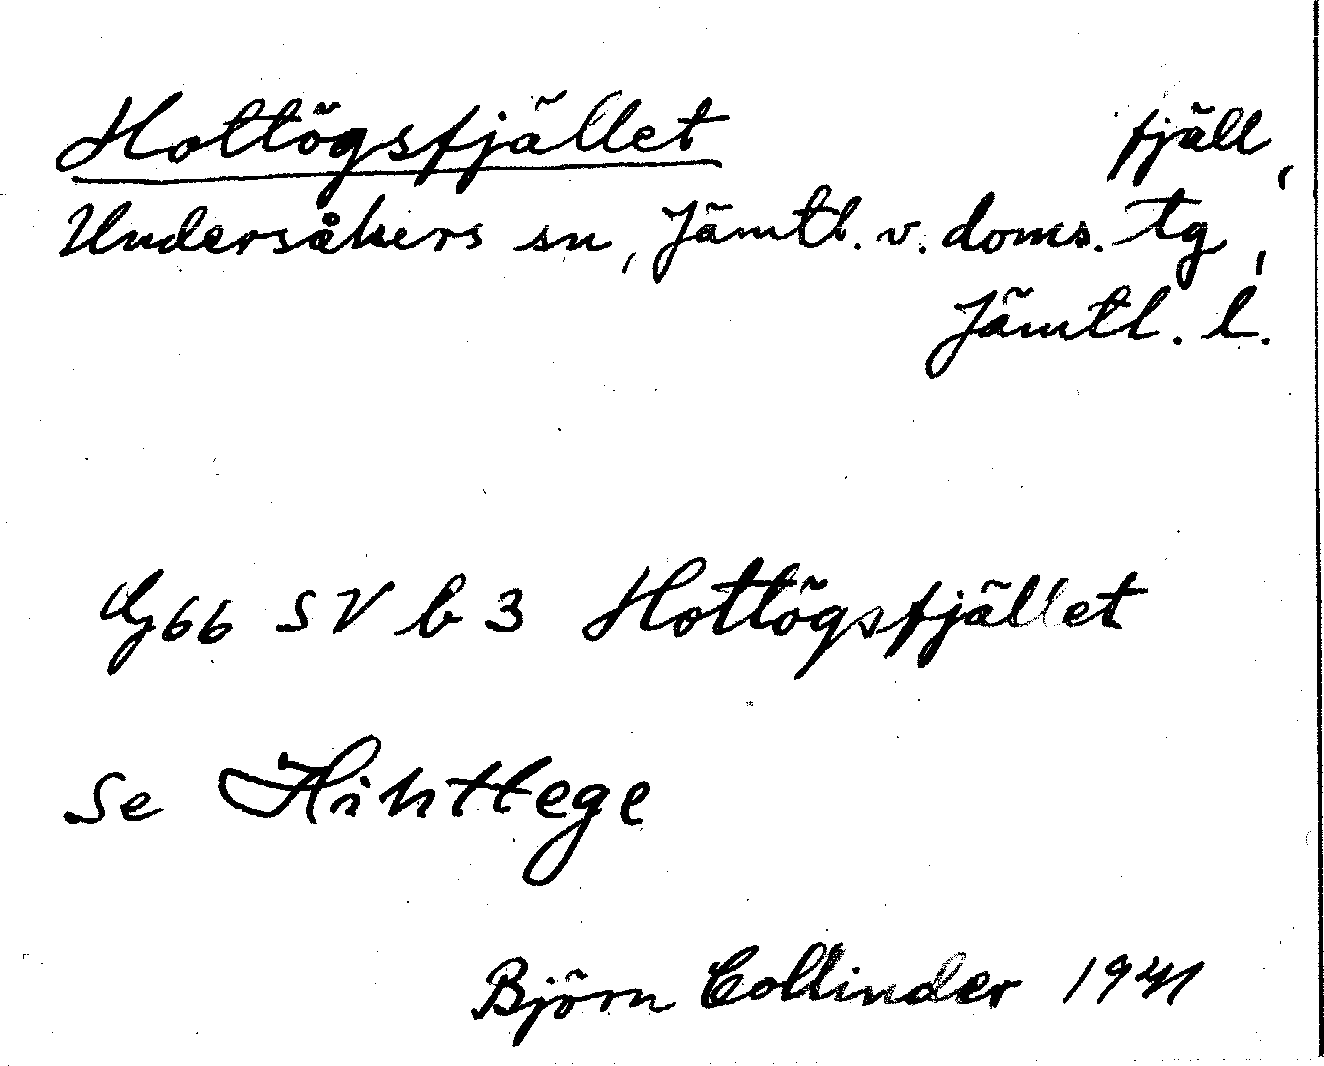 Hottögsfjället fjäll,
Undersåkers sn, Jämtl. v. doms. tg,
Jämtl. l.
Gg66 SV b 3 Hottögsfjället
Se Hihttege
Björn Collinder 1941